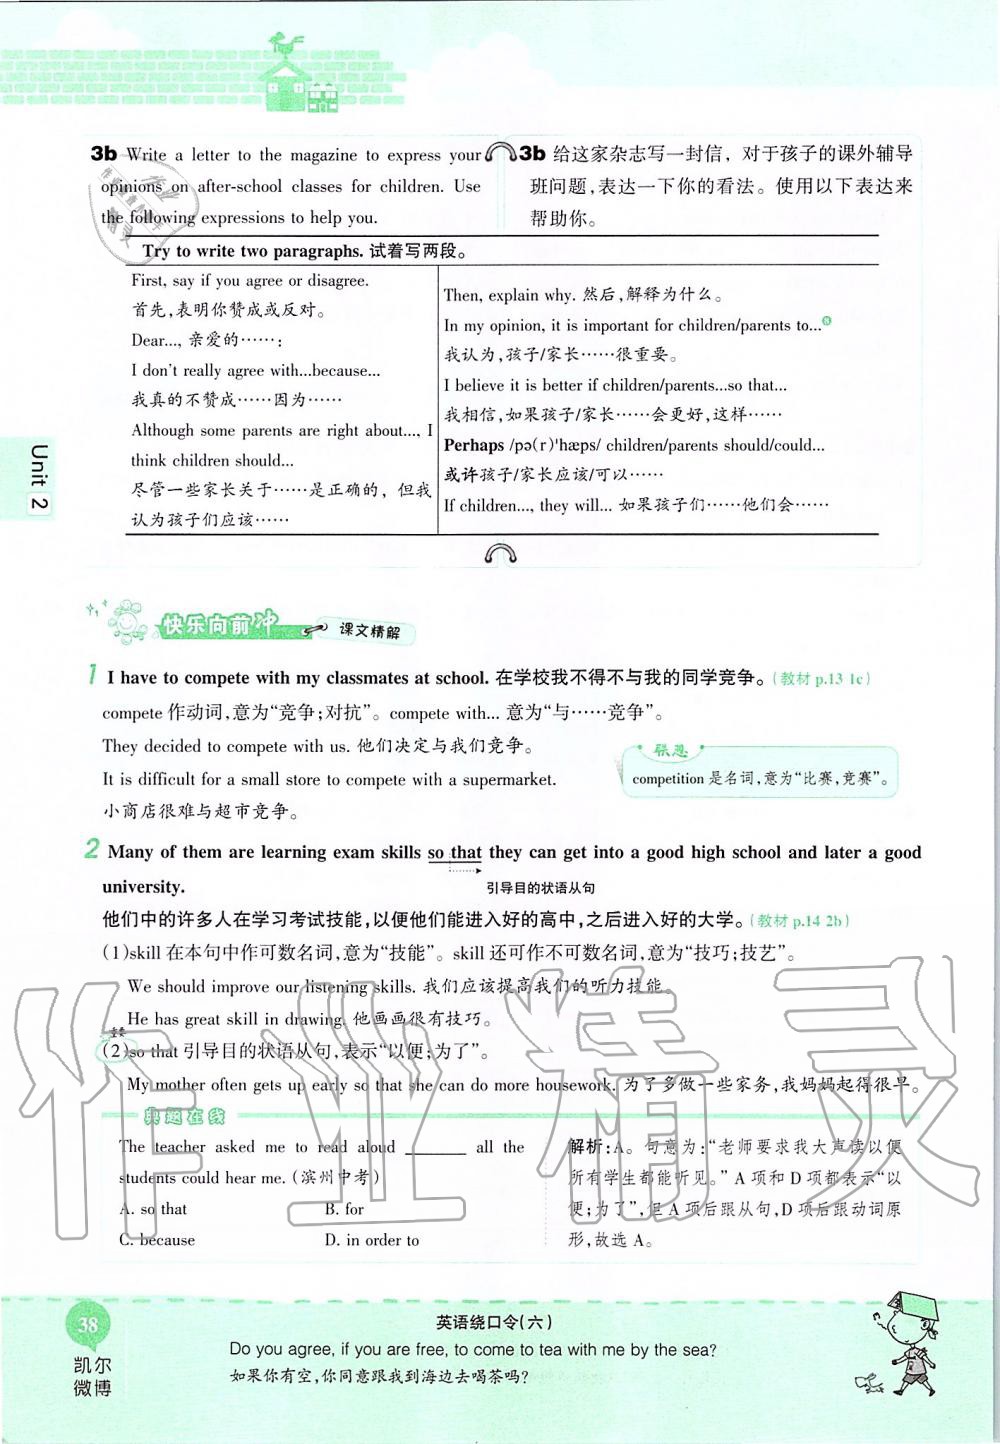 3b Write a letter to the magazine to express your
opinions on after-school classes for children. Use
the following expressions to help you.
3b 给这家杂志写一封信，对于孩子的课外辅导
班问题，表达一下你的看法。使用以下表达来
帮助你。
Try to write two paragraphs. 试着写两段。
First, say if you agree or disagree.
首先，表明你赞成或反对。
Dear..., 亲爱的……：
I don't really agree with...because...
我真的不赞成……因为……
Although some parents are right about..., I
think children should...
尽管一些家长关于……是正确的，但我
认为孩子们应该……
Then, explain why. 然后，解释为什么。
In my opinion, it is important for children/parents to...⑧
我认为，孩子/家长……很重要。
I believe it is better if children/parents...so that...
我相信，如果孩子/家长……会更好，这样……
Perhaps /pə(r)'hæps/ children/parents should/could...
或许孩子/家长应该/可以……
If children..., they will... 如果孩子们……他们会……
Unit 2
快乐向前冲 课文精解
1 I have to compete with my classmates at school. 在学校我不得不与我的同学竞争。(教材 p.13 1c)
compete 作动词，意为“竞争；对抗”。compete with... 意为“与……竞争”。
They decided to compete with us. 他们决定与我们竞争。
It is difficult for a small store to compete with a supermarket.
小商店很难与超市竞争。
联想
competition 是名词，意为“比赛，竞赛”。
2 Many of them are learning exam skills so that they can get into a good high school and later a good
引导目的状语从句
university.
他们中的许多人在学习考试技能，以便他们能进入好的高中，之后进入好的大学。(教材 p.14 2b)
(1)skill 在本句中作可数名词，意为“技能”。skill 还可作不可数名词，意为“技巧；技艺”。
We should improve our listening skills. 我们应该提高我们的听力技能。
He has great skill in drawing. 他画画很有技巧。
重点
(2)so that 引导目的状语从句，表示“以便；为了”。
My mother often gets up early so that she can do more housework. 为了多做一些家务，我妈妈起得很早。
典题在线
The teacher asked me to read aloud ______ all the
students could hear me. (滨州中考)
A. so that B. for
C. because D. in order to
解析：A。句意为：“老师要求我大声读以便
所有学生都能听见。”A 项和 D 项都表示“以
便；为了”，但 A 项后跟从句，D 项后跟动词原
形，故选 A。
作业精灵
38
凯尔
微博
英语绕口令(六)
Do you agree, if you are free, to come to tea with me by the sea?
如果你有空，你同意跟我到海边去喝茶吗？